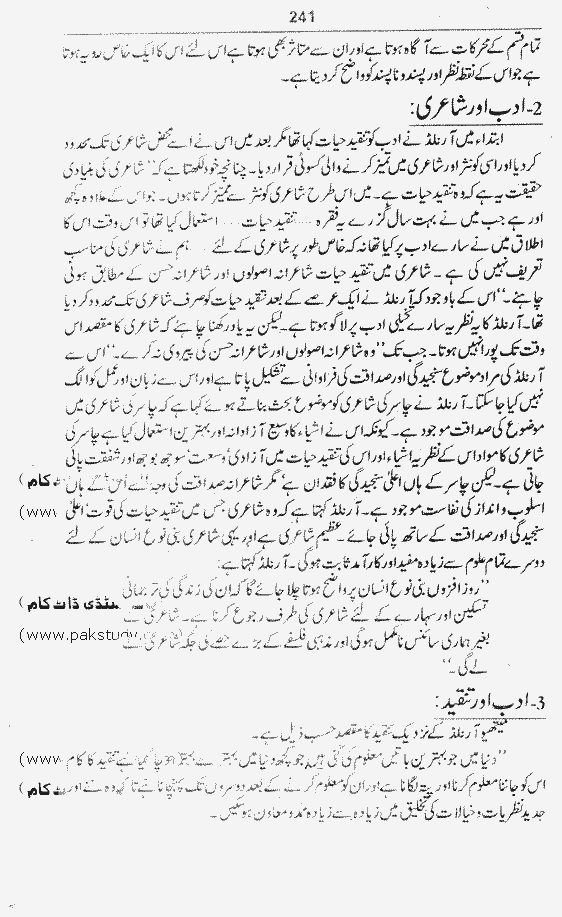 241
تمام قسم کے محرکات سے آگاہ ہوتا ہے اور ان سے متاثر بھی ہوتا ہے اس لئے اس کا ایک خاص رویہ ہوتا
ہے جو اس کے نقطۂ نظر اور پسند و ناپسند کو واضح کر دیتا ہے۔
2- ادب اور شاعری:
ابتداء میں آرنلڈ نے ادب کو تنقید حیات کہا تھا مگر بعد میں اس نے اسے محض شاعری تک محدود
کر دیا اور اسی کو نثر اور شاعری میں تمیز کرنے والی کسوٹی قرار دیا۔ چنانچہ خود لکھتا ہے کہ "شاعری کی بنیادی
حقیقت یہ ہے کہ وہ تنقید حیات ہے۔ میں اس طرح شاعری کو نثر سے ممیز کرتا ہوں۔ جو اس کے علاوہ کچھ
اور ہے جب میں نے بہت سال گزرے یہ فقرہ .... تنقید حیات .... استعمال کیا تھا تو اس وقت اس کا
اطلاق میں نے سارے ادب پر کیا تھا نہ کہ خاص طور پر شاعری کے لئے ہم نے شاعری کی مناسب
تعریف نہیں کی ہے ۔ شاعری میں تنقید حیات شاعرانہ اصولوں اور شاعرانہ حسن کے مطابق ہونی
چاہئے۔" اس کے باوجود کہ آرنلڈ نے ایک عرصے کے بعد تنقید حیات کو صرف شاعری تک محدود کر دیا
تھا۔ آرنلڈ کا یہ نظریہ سارے تخیلی ادب پر لاگو ہوتا ہے۔ لیکن یہ یاد رکھنا چاہئے کہ شاعری کا مقصد اس
وقت تک پورا نہیں ہوتا۔ جب تک "وہ شاعرانہ اصولوں اور شاعرانہ حسن کی پیروی نہ کرے۔" اس سے
آرنلڈ کی مراد موضوع سنجیدگی اور صداقت کی فراوانی سے تشکیل پاتا ہے اور اس سے زبان اور عمل کو الگ
نہیں کیا جا سکتا۔ آرنلڈ نے چاسر کی شاعری کو موضوع بحث بناتے ہوئے کہا ہے کہ چاسر کی شاعری میں
موضوع کی صداقت موجود ہے۔ کیونکہ اس نے اشیاء کا وسیع آزادانہ اور بہترین استعمال کیا ہے چاسر کی
شاعری کا مواد اس کے نظریہ اشیاء اور اس کی تنقید حیات میں آزادی' وسعت' سوجھ بوجھ اور شفقت پائی
جاتی ہے۔ لیکن چاسر کے ہاں اعلیٰ سنجیدگی کا فقدان ہے' مگر شاعرانہ صداقت کی وجہ سے اس کے ہاں
اسلوب و انداز کی نفاست موجود ہے۔ آرنلڈ کہتا ہے کہ وہ شاعری جس میں تنقید حیات کی قوت' اعلیٰ
سنجیدگی اور صداقت کے ساتھ پائی جائے۔ عظیم شاعری ہے اور یہی شاعری بنی نوع انسان کے لئے
دوسرے تمام علوم سے زیادہ مفید اور کارآمد ثابت ہو گی۔ آرنلڈ کہتا ہے:
"روز افزوں بنی نوع انسان پر واضح ہوتا چلا جائے گا کہ ان کی زندگی کی ترجمانی
تسکین اور سہارے کے لئے شاعری کی طرف رجوع کرنا ہے۔ شاعری کے
بغیر ہماری سائنس نامکمل ہو گی اور مذہبی فلسفے کے بڑے حصے کی جگہ شاعری لے
لے گی۔"
3- ادب اور تنقید:
میتھیو آرنلڈ کے نزدیک تنقید کا مقصد حسب ذیل ہے۔
"دنیا میں جو بہترین باتیں معلوم کی گئی ہیں جو کچھ دنیا میں بہتر سے بہتر سوچا گیا ہے تنقید کا کام
اس کو جاننا معلوم کرنا اور پتہ لگانا ہے اور ان کو معلوم کرنے کے بعد دوسروں تک پہنچانا ہے تاکہ وہ نئے اور
جدید نظریات و خیالات کی تخلیق میں زیادہ سے زیادہ ممد و معاون ہو سکیں۔
کام )
(www
سٹڈی ڈاٹ کام )
(www.pakstudy.
(www
کام )